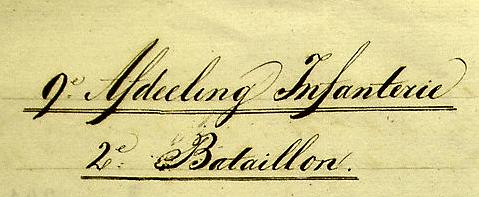 9e Afdeeling Infanterie
2e Bataillon.